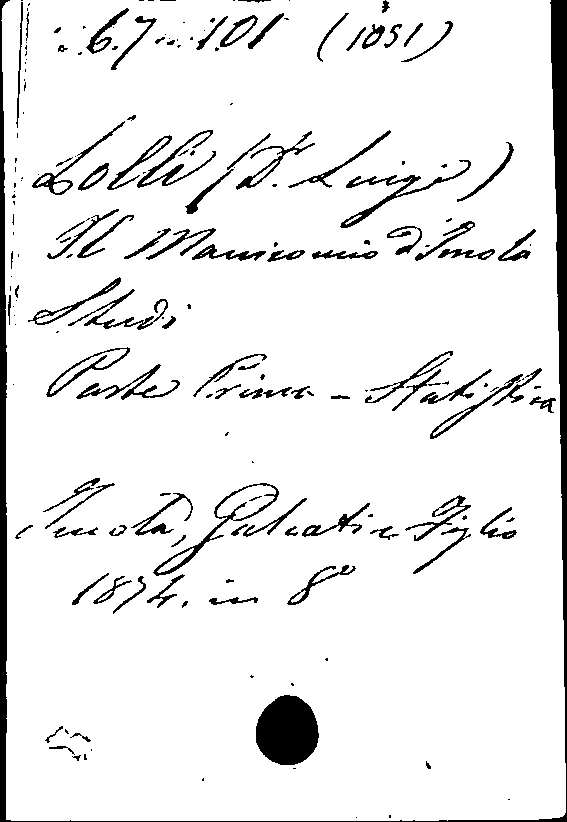 6.7 101 (1051)
Lolli (Dr. Luigi)
Il Manicomio d'Imola
Studi
Parte Prima - Statistica
Imola, Galeati e Figlio
1874. in 8°